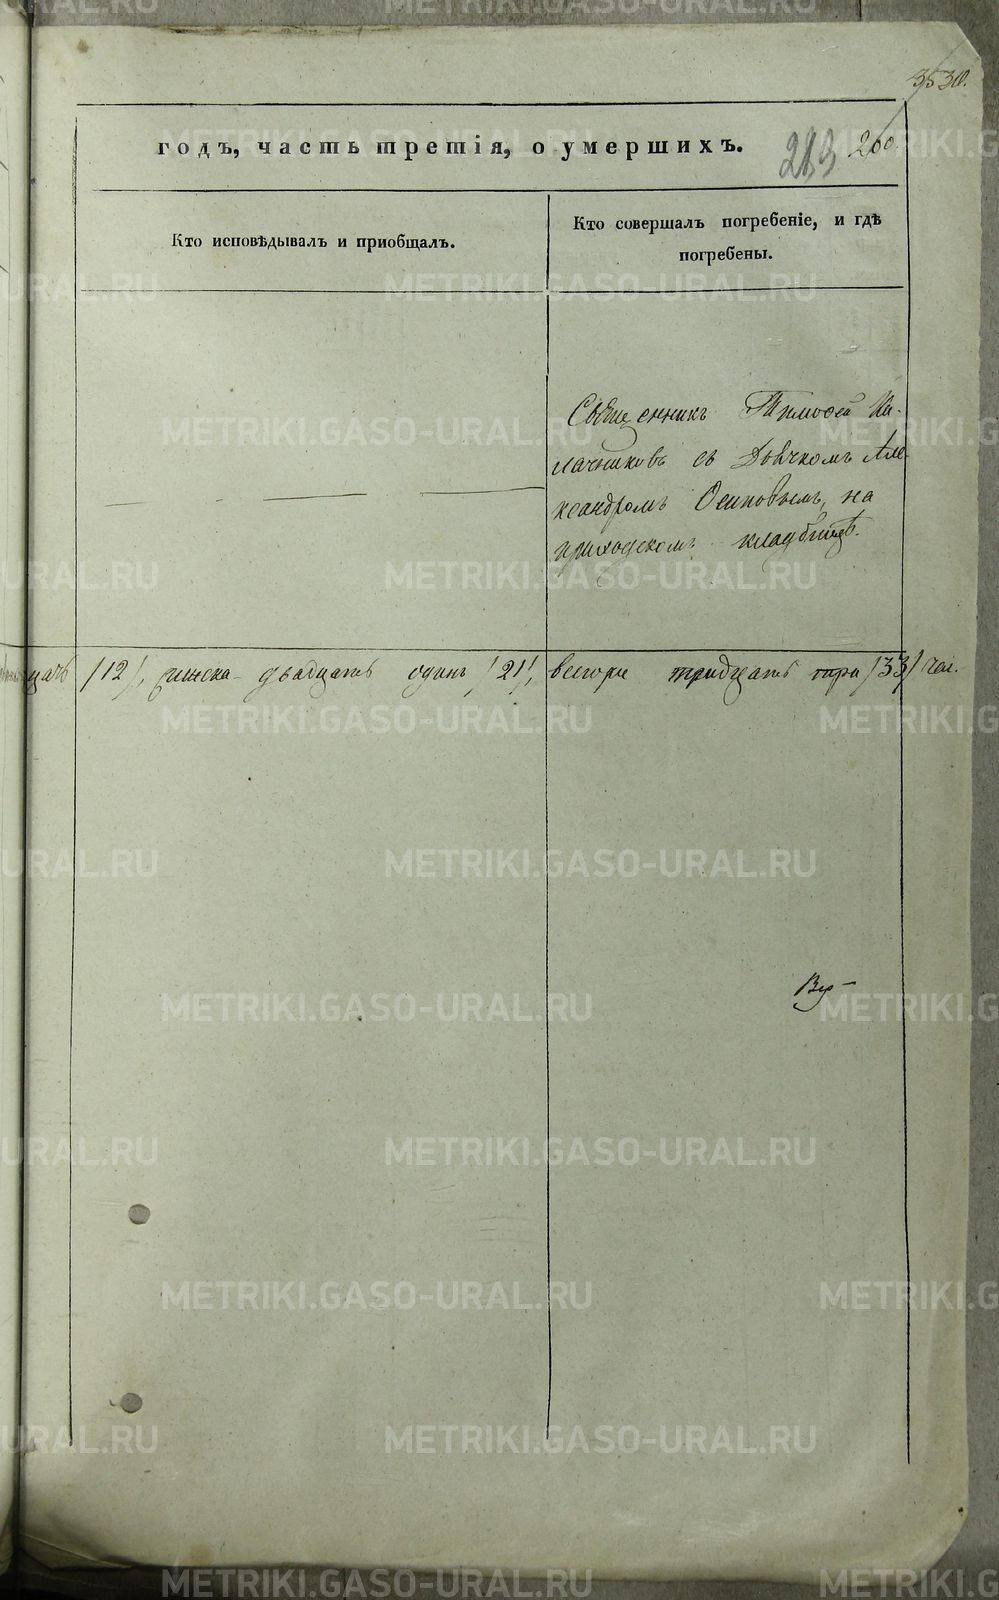 353 об.
годъ, часть третія, о умершихъ.
213
260
Кто исповѣдывалъ и приобщалъ.
Кто совершалъ погребеніе, и гдѣ
погребены.
Священникъ Тимофей Ка-
лачниковъ съ Дьячкомъ Але-
ксандромъ Осиповымъ, на
приходскомъ кладбищѣ.
цать /12/, женска двадцать одинъ /21/, всего тридцать три /33/ чел.
METRIKI.GASO-URAL.RU